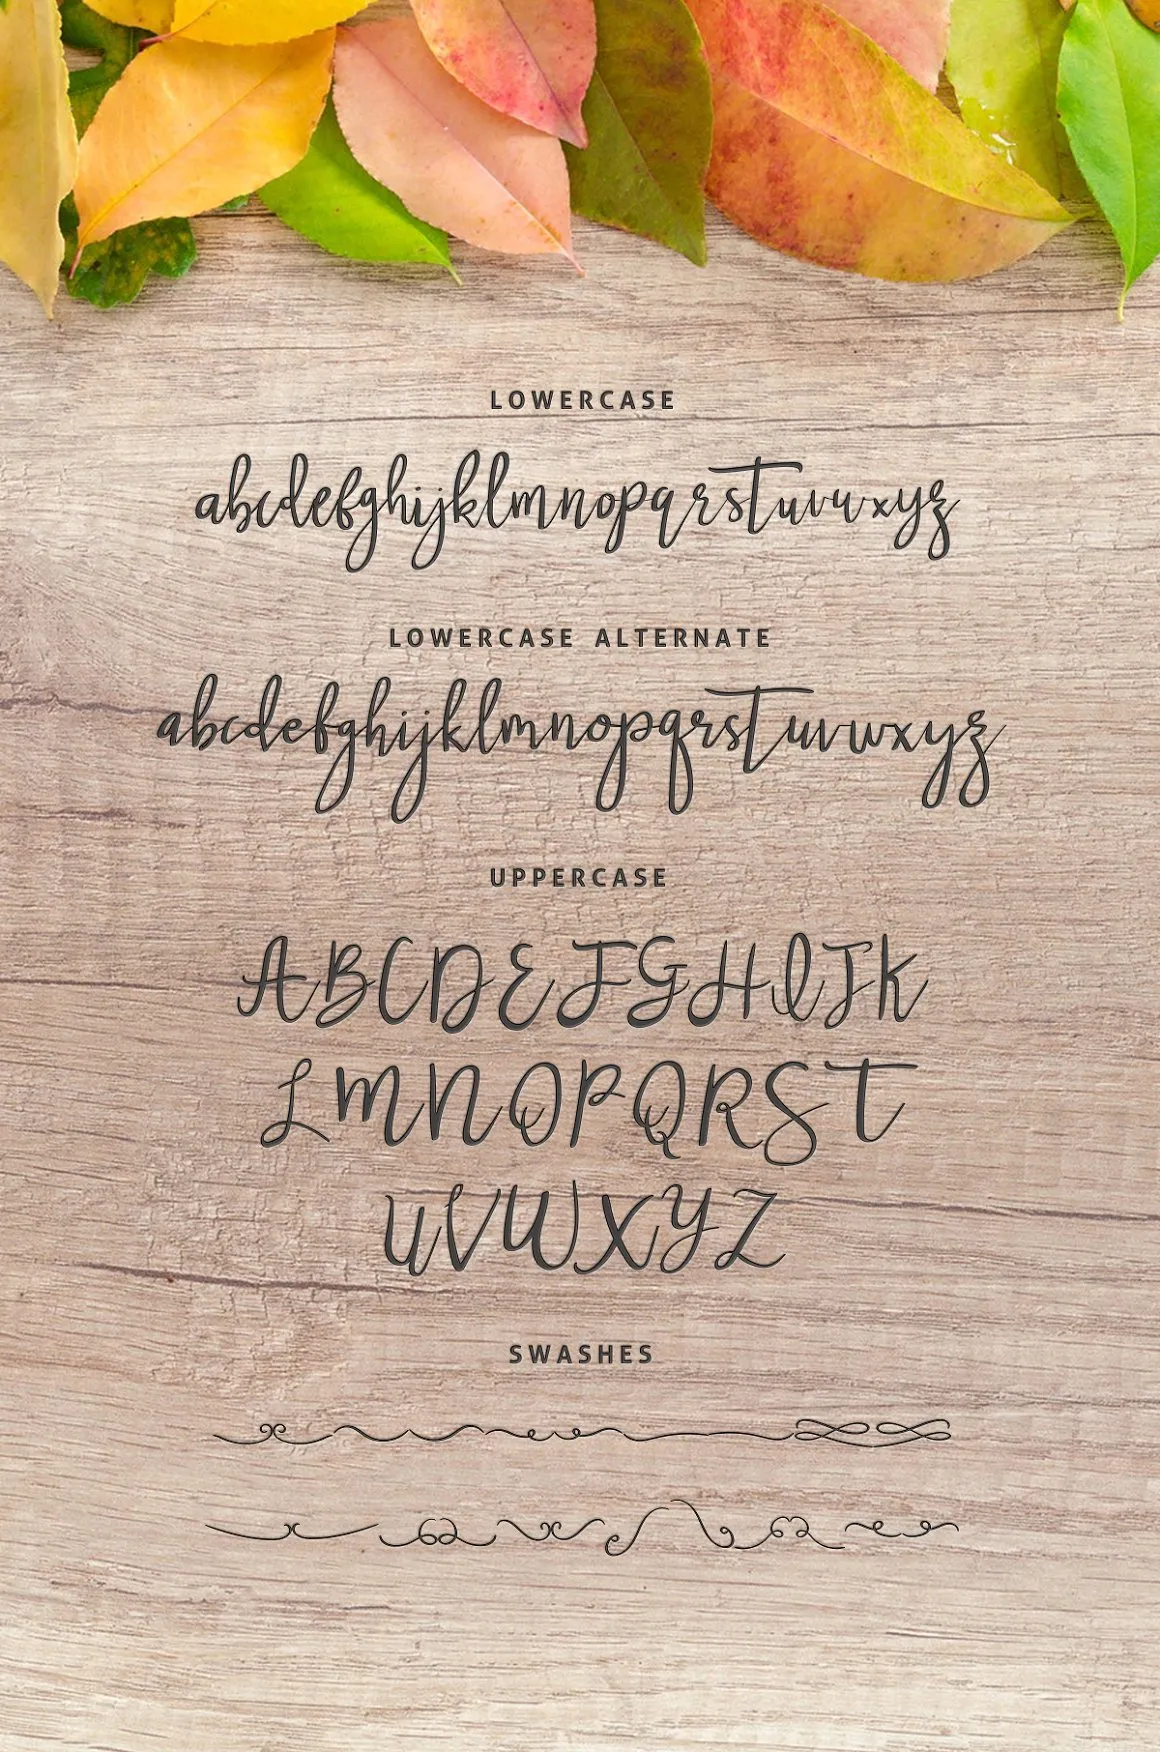 LOWERCASE
abcdefghijklmnopqrstuvwxyz
LOWERCASE ALTERNATE
abcdefghijklmnopqrstuvwxyz
UPPERCASE
ABCDEFGHIJK
LMNOPQRST
UVWXYZ
SWASHES